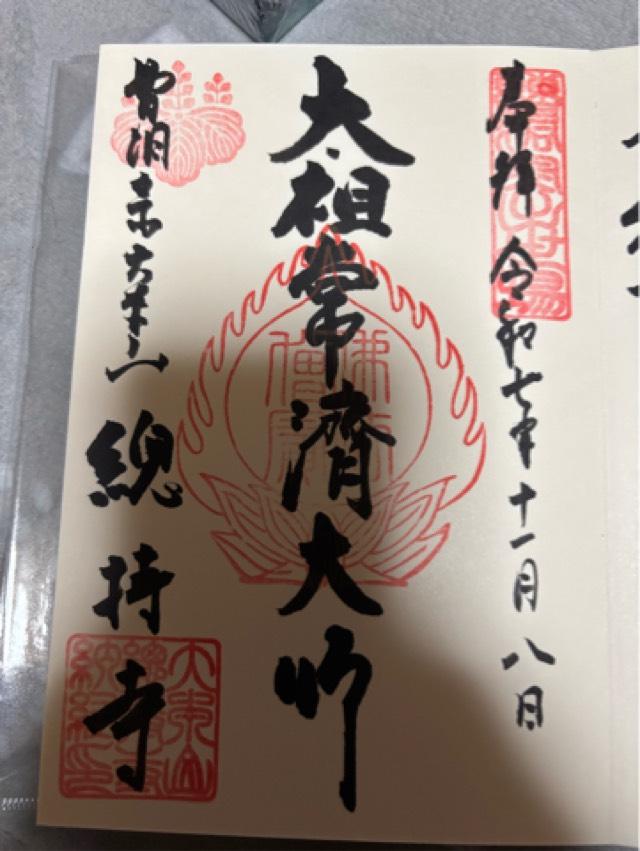 奉拝 令和七年十一月八日
太祖常濟大師
曹洞宗大本山 總持寺